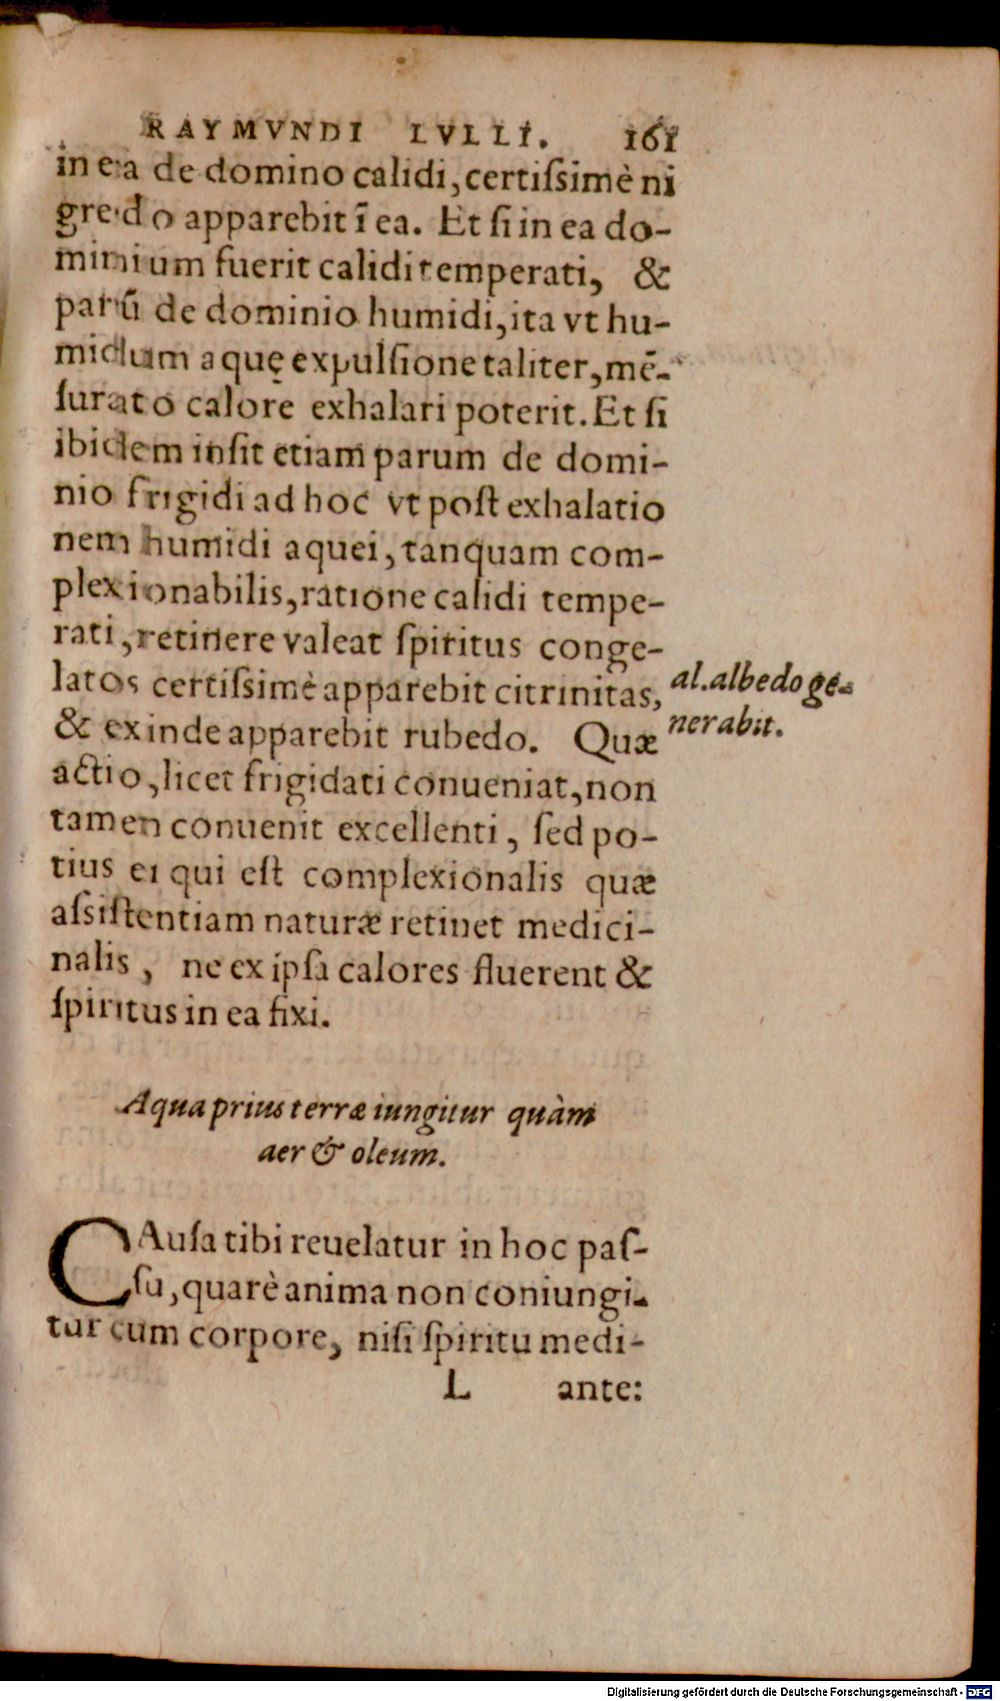 RAYMVNDI LVLLI. 161
in ea de domino calidi, certiſsimè ni
gredo apparebit ī ea. Et ſi in ea do-
minium fuerit calidi temperati, &
parū de dominio humidi, ita vt hu-
midum aquę expulſione taliter, mē-
ſurato calore exhalari poterit. Et ſi
ibidem inſit etiam parum de domi-
nio frigidi ad hoc vt poſt exhalatio
nem humidi aquei, tanquam com-
plexionabilis, ratione calidi tempe-
rati, retinere valeat ſpiritus conge-
latos certiſsimè apparebit citrinitas,
al. albedo ge-
& exinde apparebit rubedo. Quæ
nerabit.
actio, licet frigidati conueniat, non
tamen conuenit excellenti, ſed po-
tius ei qui eſt complexionalis quæ
aſsiſtentiam naturæ retinet medici-
nalis, ne ex ipſa calores fluerent &
ſpiritus in ea fixi.
Aqua prius terræ iungitur quàm
aer & oleum.
CAuſa tibi reuelatur in hoc paſ-
ſu, quarè anima non coniungi-
tur cum corpore, niſi ſpiritu medi-
L ante:
Digitalisierung gefördert durch die Deutsche Forschungsgemeinschaft - DFG